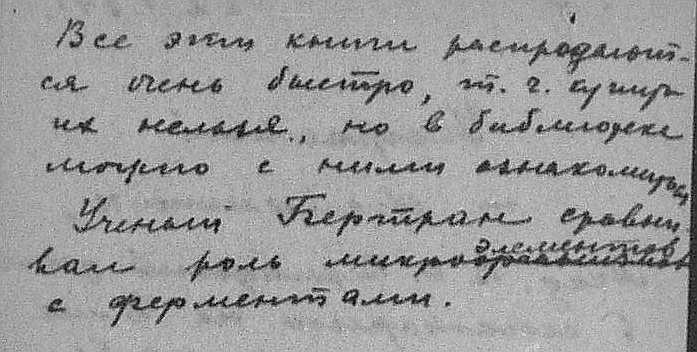 Все эти книги распродают-
ся очень быстро, т. ч. купить
их нельзя, но в библиотеке
можно с ними ознакомиться
Ученый Бертран сравни
вал роль микроэлементов
с ферментами.